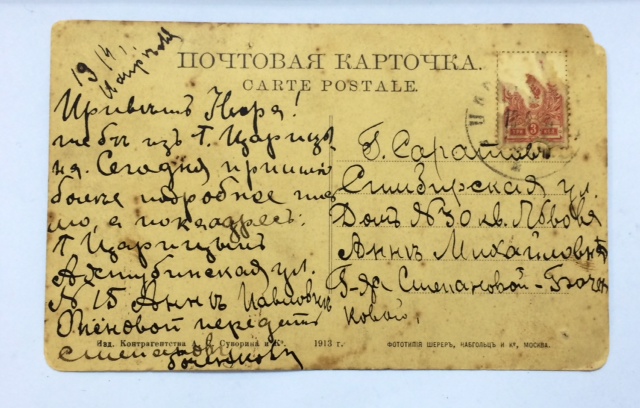 1914
ПОЧТОВАЯ КАРТОЧКА.
CARTE POSTALE.
Нюра!
тебѣ изъ Г. Царицы
на. Сегодня пришлю
болѣе подробное пись
мо, а пока адресъ:
Г Царицынъ
Ахтубинская ул.
№ 15 Аннѣ Павловнѣ
передать
Г. Саратовъ
Симбирская ул.
Домъ № 30 кв. Львова
Аннѣ Михайловнѣ
Г-жѣ Степановой-Бочен
ковой,
3
Изд. Контрагентства А. С. Суворина и К°. 1913 г.
ФОТОТИПІЯ ШЕРЕРЪ, НАБГОЛЬЦЪ И К°, МОСКВА.